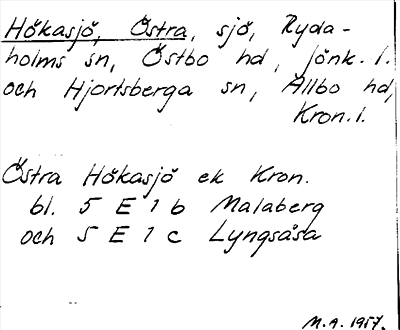 Hökasjö, Östra, sjö, Ryda-
holms sn, Östbo hd, Jönk. l.
och Hjortsberga sn, Allbo hd,
Kron. l.
Östra Hökasjö ek Kron.
bl. 5 E 1 b Malaberg
och 5 E 1 c Lyngsåsa
M.A. 1957.